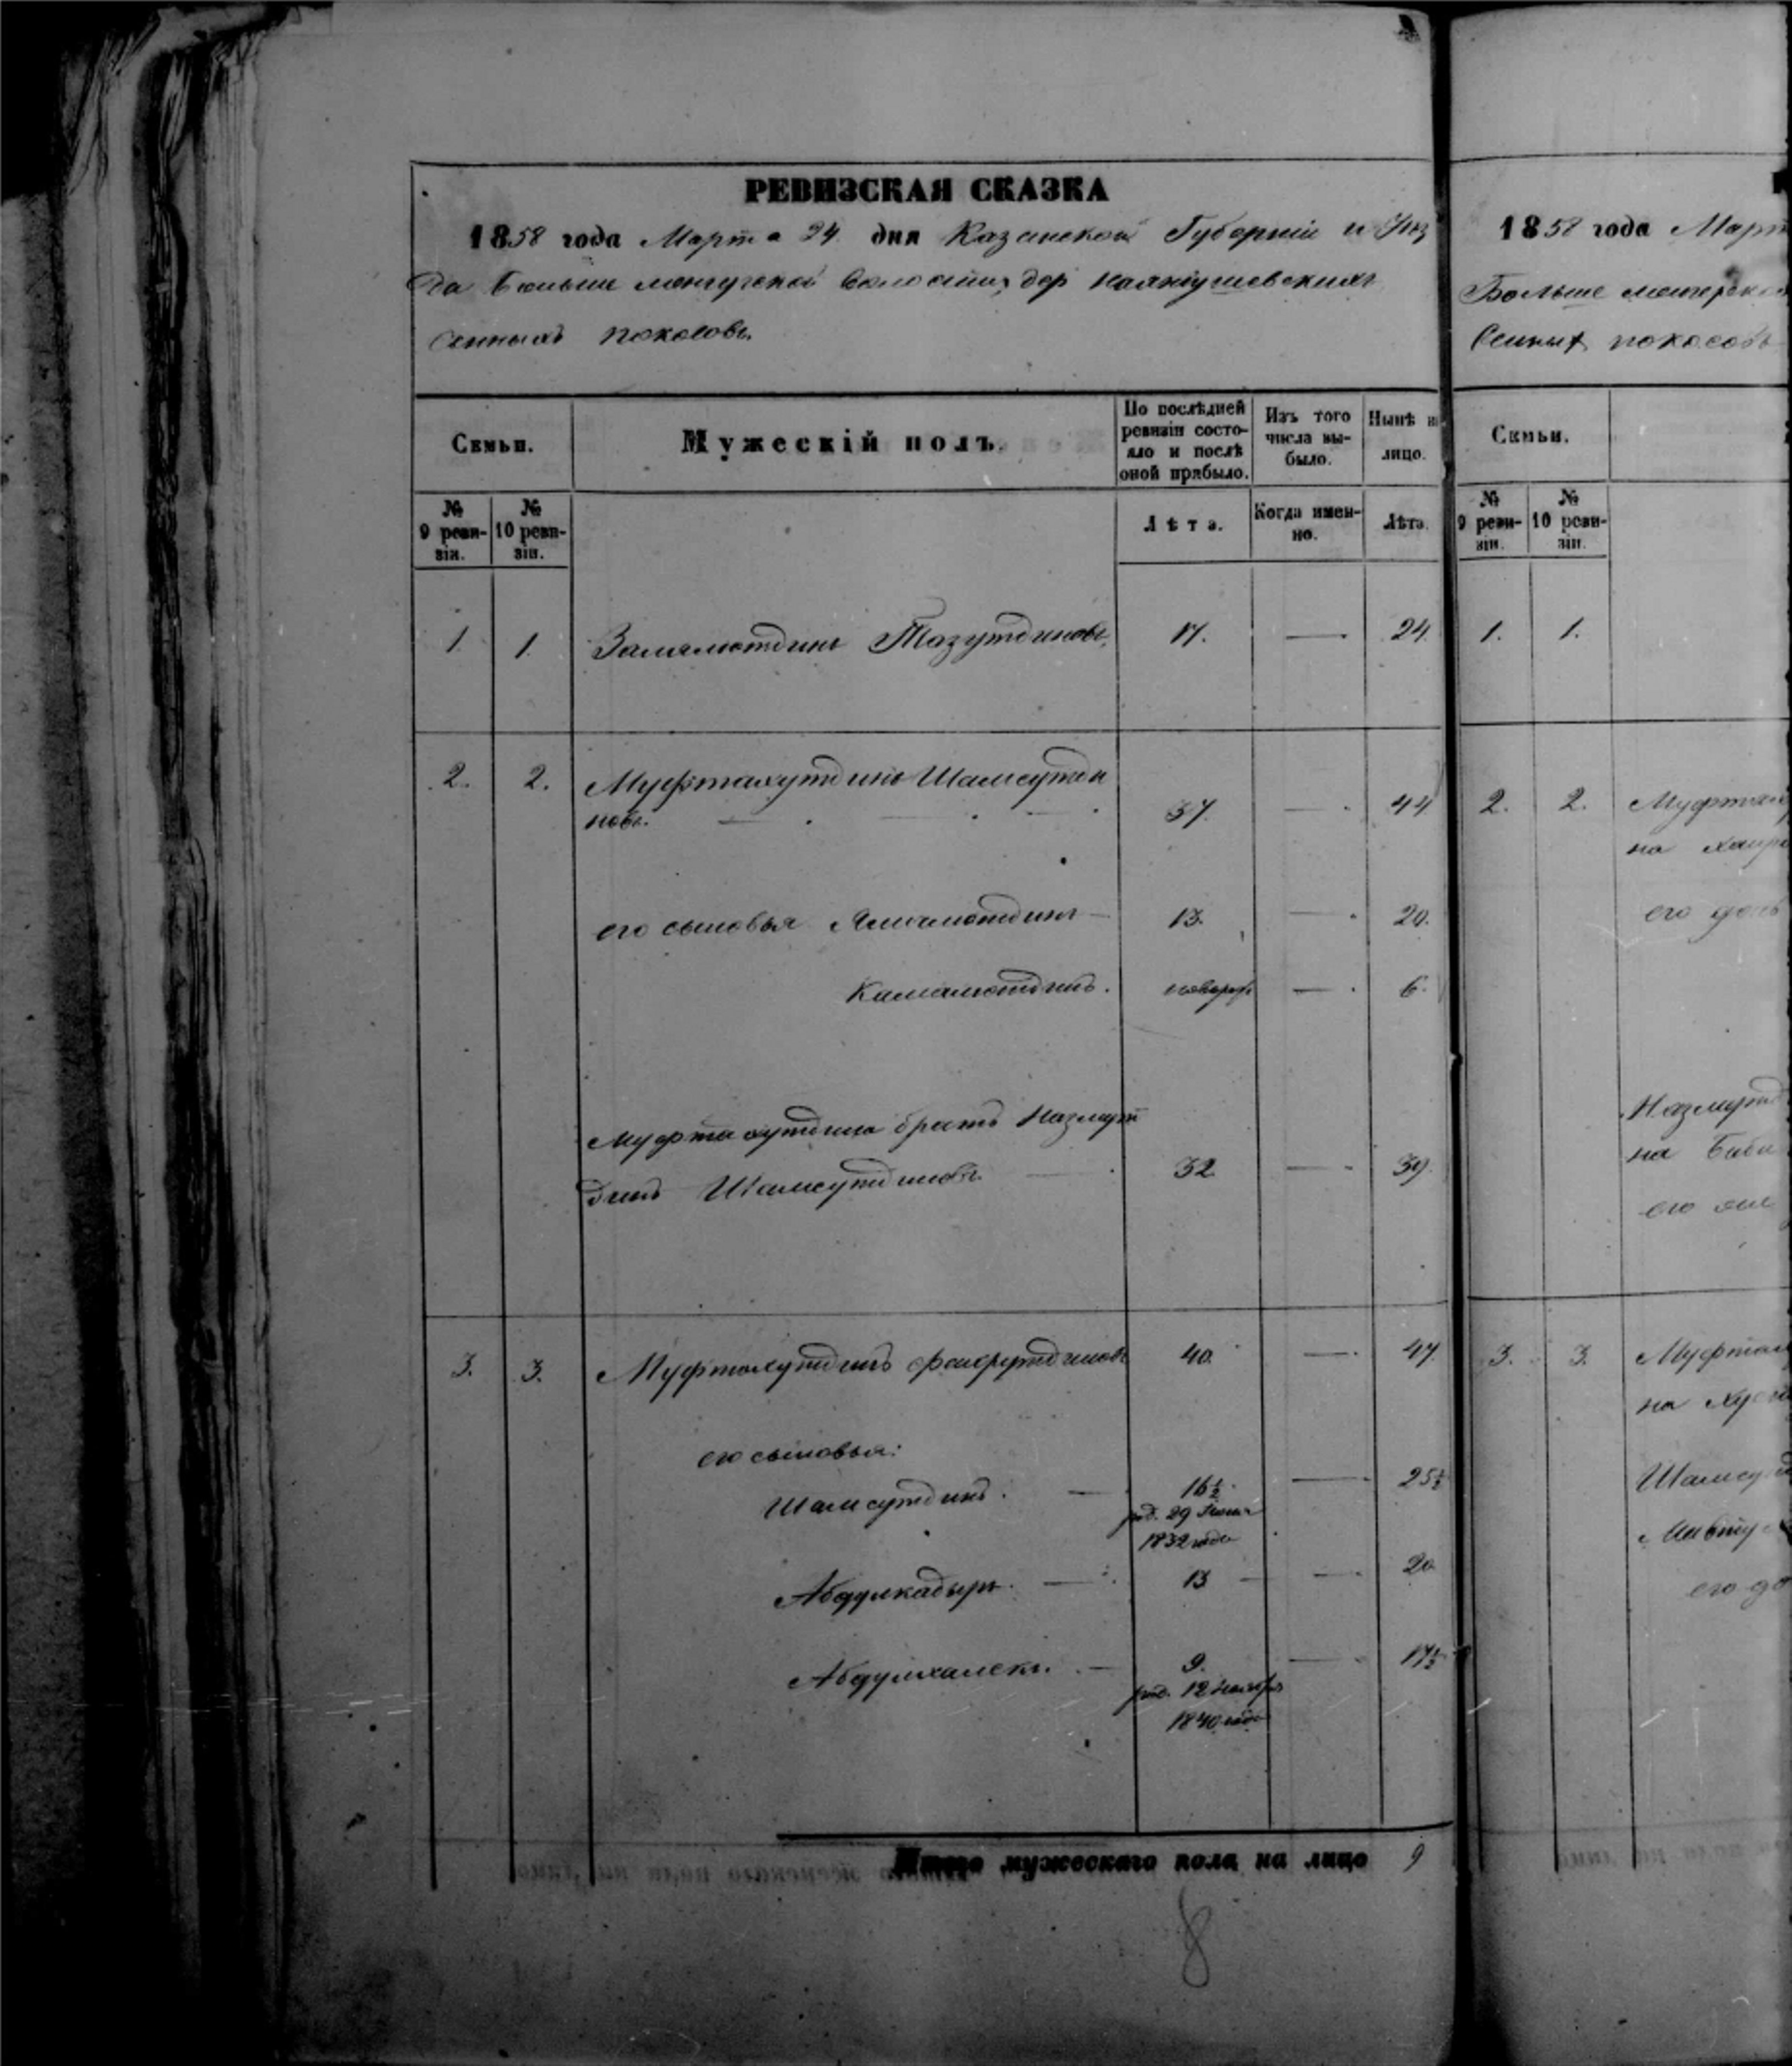 РЕВИЗСКАЯ СКАЗКА
1858 года Марта 24 дня Казанской Губерніи и Уѣз
да Больше менгерской волости, дер
Сенныхъ покосовъ
Семьи.
Мужескій полъ.
По послѣдней ревизіи состояло и послѣ оной прибыло.
Изъ того числа выбыло.
Нынѣ на лицо.
№ 9 ревизіи.
№ 10 ревизіи.
Лѣта.
Когда именно.
Лѣта.
1. 1. Замалютдинъ Тазутдиновъ 17. — 24.
2. 2. Муфтахутдинъ Шамсутди
новъ. 37. — 44
его сыновья Ямалютдинъ — 13. — 20.
Камалютдинъ. новорож — 6.
Муфтахутдина братъ Назмут
динъ Шамсутдиновъ. 32 — 39.
3. 3. Муфтахутдинъ Фахрутдиновъ 40. — 47.
его сыновья:
Шамсутдинъ. — 16½ — 25½
род. 29 Іюня
1832 года
Абдулкадыръ. — 13 — 20
Абдулхалекъ. — 9. — 17½
род. 12 Ноября
1840 года
Итого мужескаго пола на лицо 9
8
1858 года Март
Больше менгерской
Сенных покосовъ
Семьи.
№ 9 ревизіи.
№ 10 ревизіи.
1. 1.
2. 2. Муфтах
на Хайр
его доч
Назмутд
на Биби
его
3. 3. Муфтах
на Хусн
Шамсутд
его до